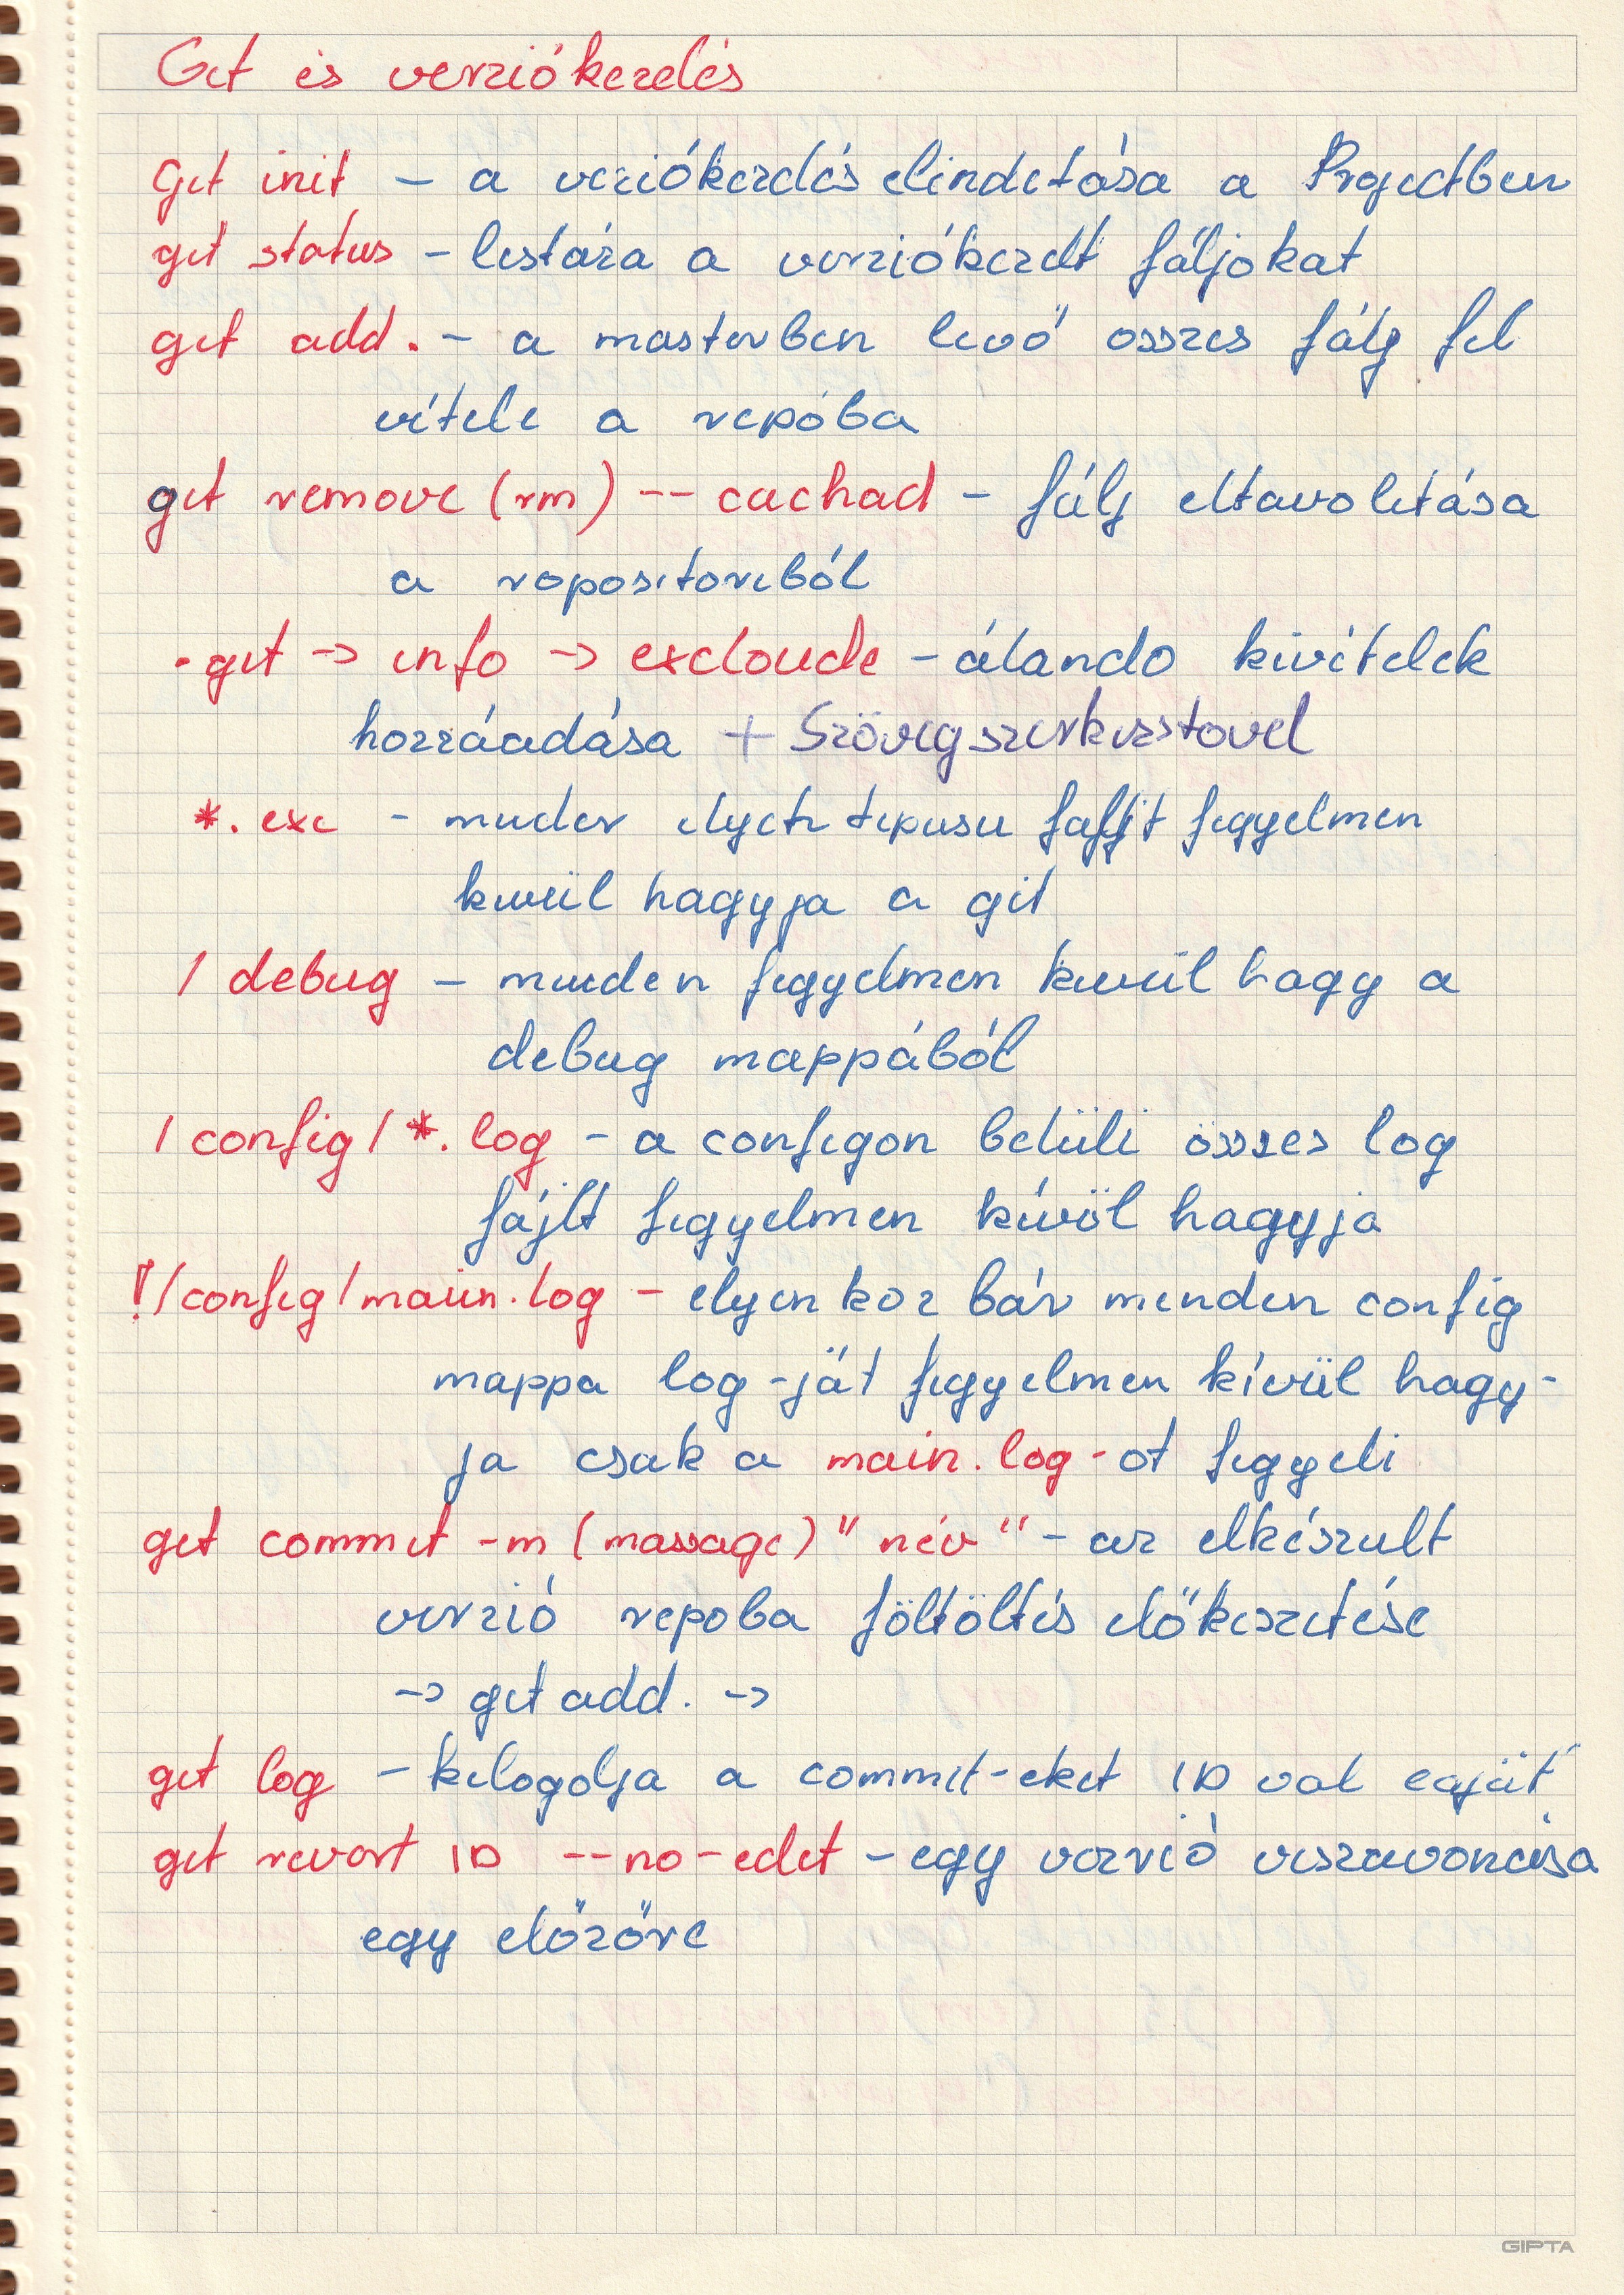 Git és verziókezelés
Git init - a veziókezelés elindítása a Projectben
git status - listára a verziókezelt fáljokat
git add. - a masterben levő összes fálj fel
vitele a repóba
git remove (rm) -- cachad - fálj eltavolitása
a ropositoriból
.git -> info -> excloude - álando kivételek
hozzáadása + Szövegszerkesztovel
*.exe - minden ilyen tipusu fajlt figyelmen
kivül hagyja a git
/ debug - minden figyelmen kivül hagy a
debug mappából
/ config / *. log - a configon belüli összes log
fájlt figyelmen kívöl hagyja
!/config/main.log - ilyenkor bár minden config
mappa log-ját figyelmen kívül hagy-
ja csak a main.log-ot figyeli
git commit -m (massage) "név" - az elkészult
verzió repoba föltöltés előkeszitése
-> git add. ->
git log - kilogolja a commit-eket ID val
git revort ID --no-edit - egy verzió viszavonása
egy előzőre
GIPTA